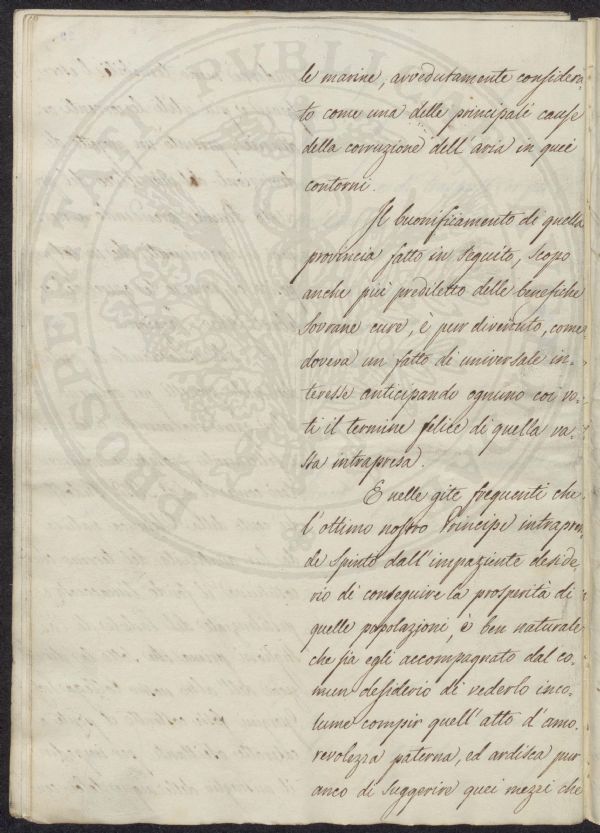 le marine, avvedutamente considera-
to come una delle principali cause
della corruzione dell'aria in quei
contorni.
Il buonificamento di quella
provincia fatto in seguito, scopo
anche più prediletto delle benefiche
sovrane cure, è pur divenuto, come
doveva un fatto di universale in-
teresse anticipando ognuno coi vo-
ti il termine felice di quella va-
sta intrapresa.
E nelle gite frequenti che
l'ottimo nostro Principe intrapren-
de spinto dall'impaziente deside-
rio di conseguire la prosperità di
quelle popolazioni, è ben naturale
che sia egli accompagnato dal co-
mun desiderio di vederlo inco-
lume compir quell'atto d'amo-
revolezza paterna, ed ardisca pur
anco di suggerire quei mezzi che
PROSPERITATI PVBLICAE